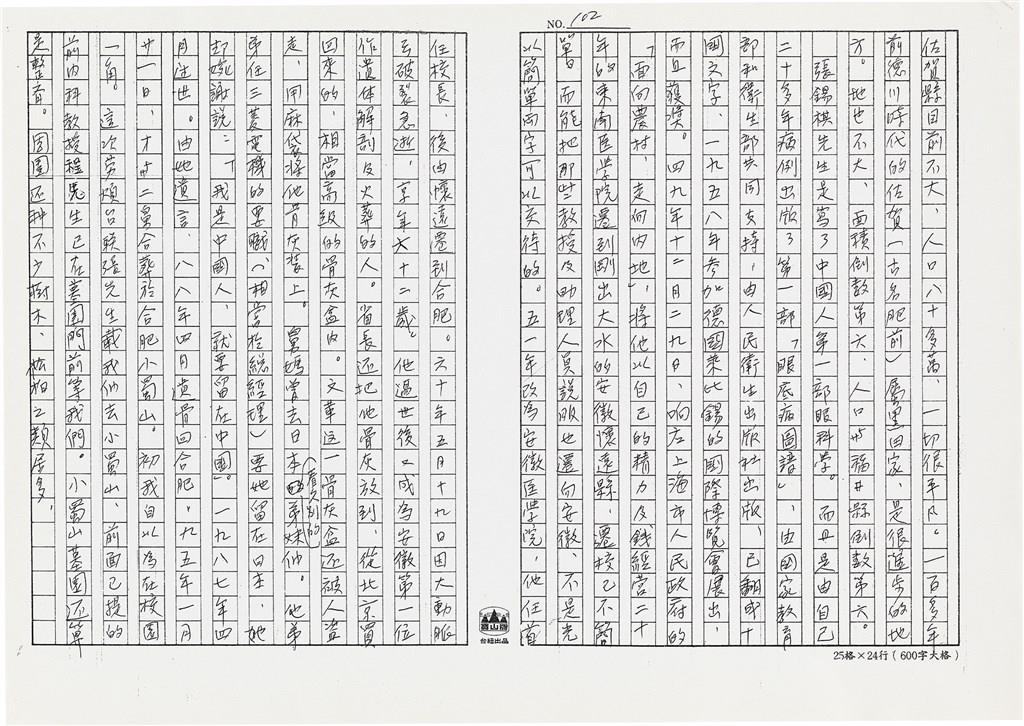 NO. 102
佐賀縣目前不大、人口八十多萬、一切很平凡。一百多年
前德川時代的佐賀(古名肥前)屬黑田家、是很進步的地
方。地也不大、面積倒數第六、人口与福井縣倒數第六。
張錫祺先生是寫了中國人第一部眼科學。而且是由自己
二十多年病例出版了第一部「眼底病圖譜」、由國家教育
部和衛生部共同支持,由人民衛生出版社出版、已翻成十
國文字、一九五八年参加德國萊比錫的國際博覽會展出,
而且獲獎。四九年十二月二九日、响应上海市人民政府的
「面向農村,走向内地」,將他以自己的精力及錢經营二十
年的東南医學院遷到剛出大水的安徽懷遠縣、遷校已不簡
單。而能把那些教授及助理人員說服也遷向安徽、不是光
以簡單两字可以交待的。五一年改為安徽医學院,他任首
任校長、後由懷遠遷到合肥。六十年五月十九日因大動脈
去破裂急逝,享年六十二歲。他過世後又成為安徽第一位
作遺体解剖及火葬的人。省長还把他骨灰放到、從北京買
回來的、相當高級的骨灰盒内。文革這一骨灰盒还被人盜
走,用麻袋將他骨灰裝上。舅媽曾去日本(看久別的)弟妹仲。他弟
弟任三菱電機的要職(相當於總經理)要她留在日本,她
却婉謝說:「我是中國人,就要留在中國」。一九八七年四
月往世。由她遺言、八八年四月遺骨回合肥,九五年一月
廿一日,才与二舅合葬於合肥小蜀山。初我自以為在校園
一角。這次劳煩台賴張先生載我们去小蜀山、前面已提的
前内科教授程先生已在墓園門前等我們。小蜀山墓園还算
是整齐。園圍还种不少樹木、松柏之類居多,
高山牌
台綿出品
25格×24行(600字大格)